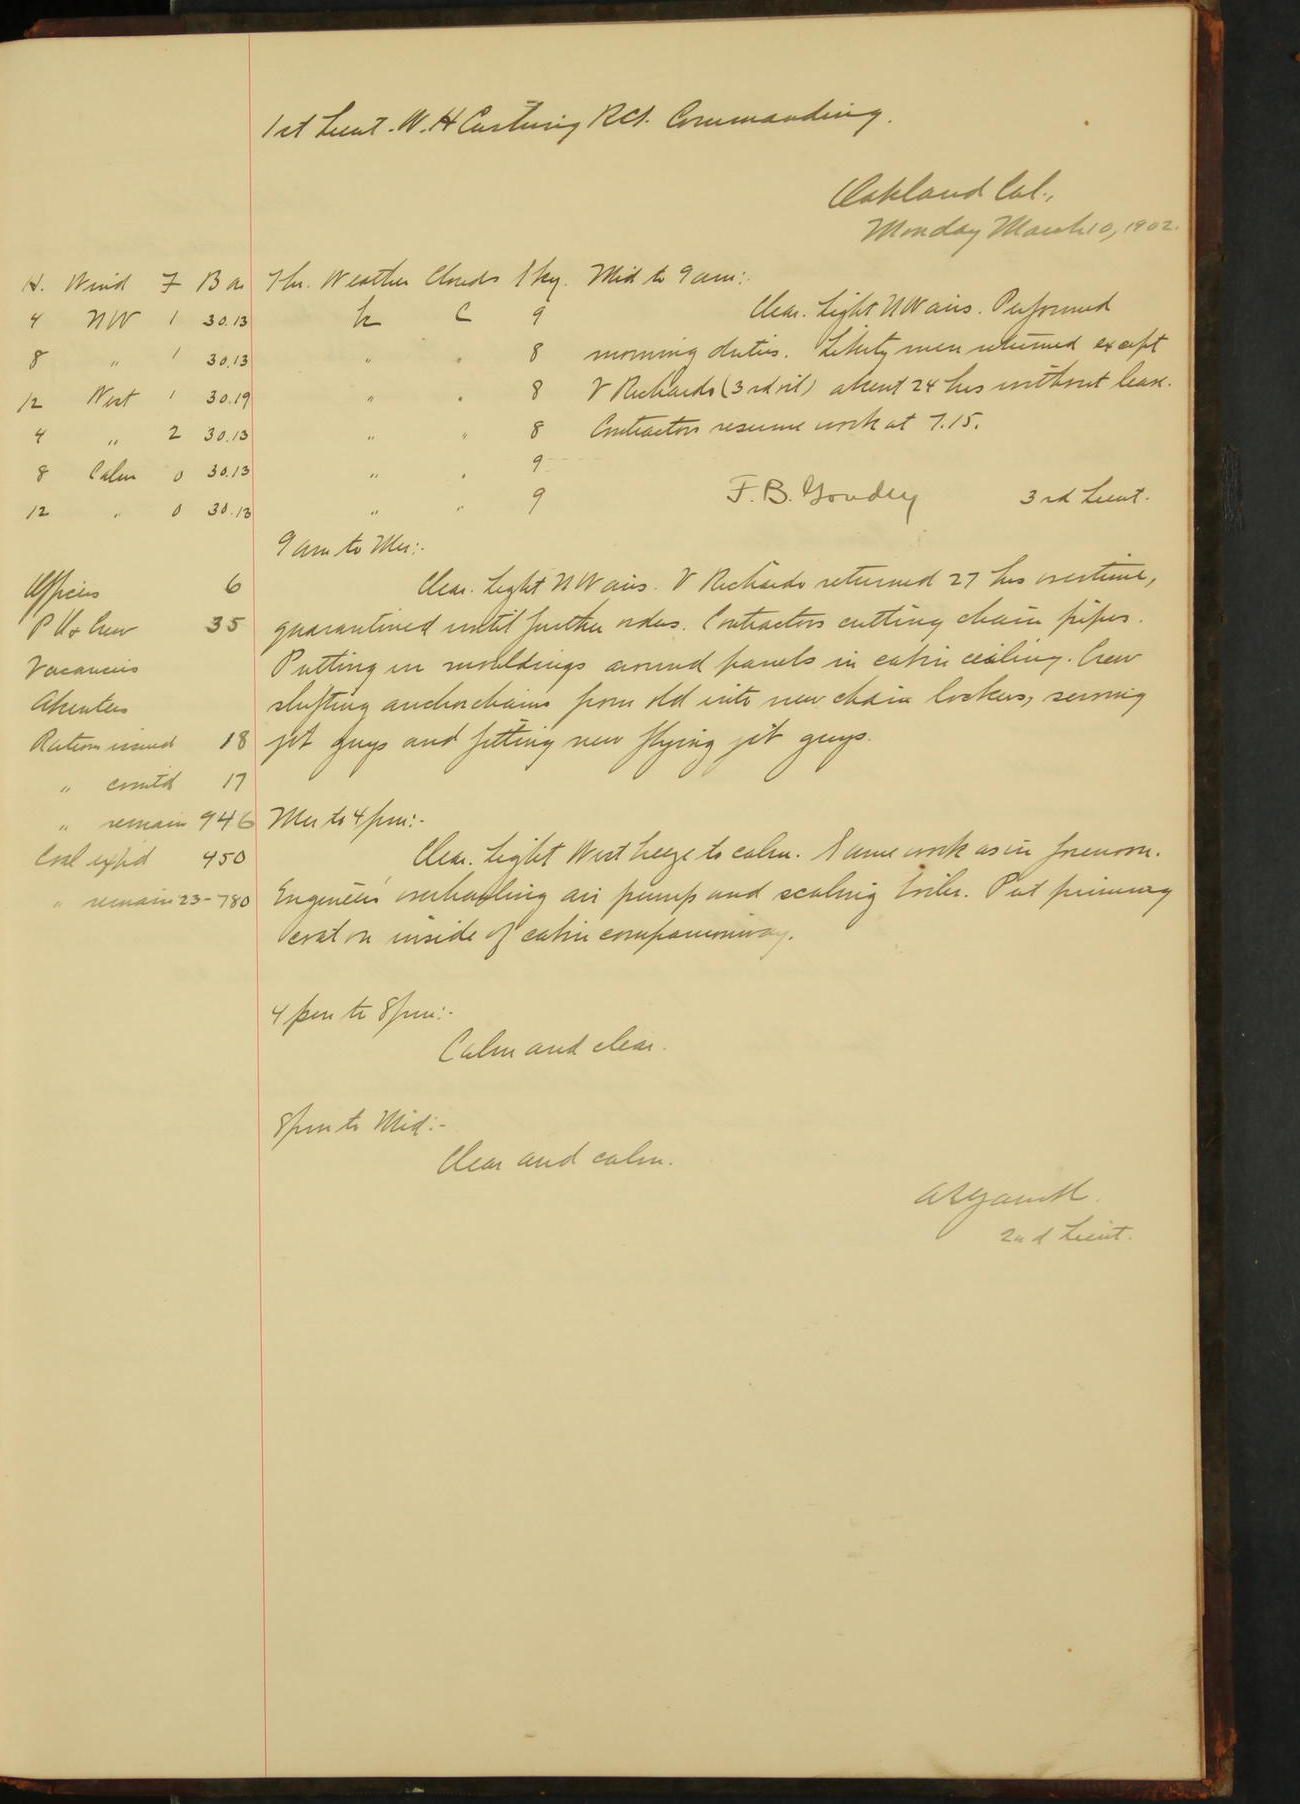 1st Lieut. W. H. Cushing RCS. Commanding.
Oakland Cal.,
Monday March 10, 1902.
H. Wind F Bar Thr. Weather Clouds Sky. Mid to 9 am:-
4 NW 1 30.13 C 9 Clear. Light NW airs. Performed
8 " 1 30.13 " " 8 morning duties. Liberty men returned except
12 West 1 30.19 " " 8 V Richards (3rd oil) absent 24 hrs without leave.
4 " 2 30.13 " " 8 Contractors resume work at 7.15.
8 Calm 0 30.13 " " 9
12 " 0 30.13 " " 9 F. B. Goudey 3rd Lieut.
9 am to Mer:-
Officers 6 Clear. Light NW airs. V Richards returned 27 hrs overtime,
P O & Crew 35 quarantined until further orders. Contractors cutting chain pipes.
Vacancies Putting in mouldings around panels in cabin ceiling. Crew
Absentees shifting anchor chains from old into new chain lockers, serving
Rations issued 18 jib guys and fitting new flying jib guys.
" com'td 17
" remain 946 Mer to 4 pm:-
Coal exp'd 450 Clear. Light West breeze to calm. Same work as in forenoon.
" remain 23-780 Engineers overhauling air pump and scaling boiler. Put priming
coat on inside of cabin companionway.
4 pm to 8 pm:-
Calm and clear.
8 pm to Mid:-
Clear and calm.
2nd Lieut.